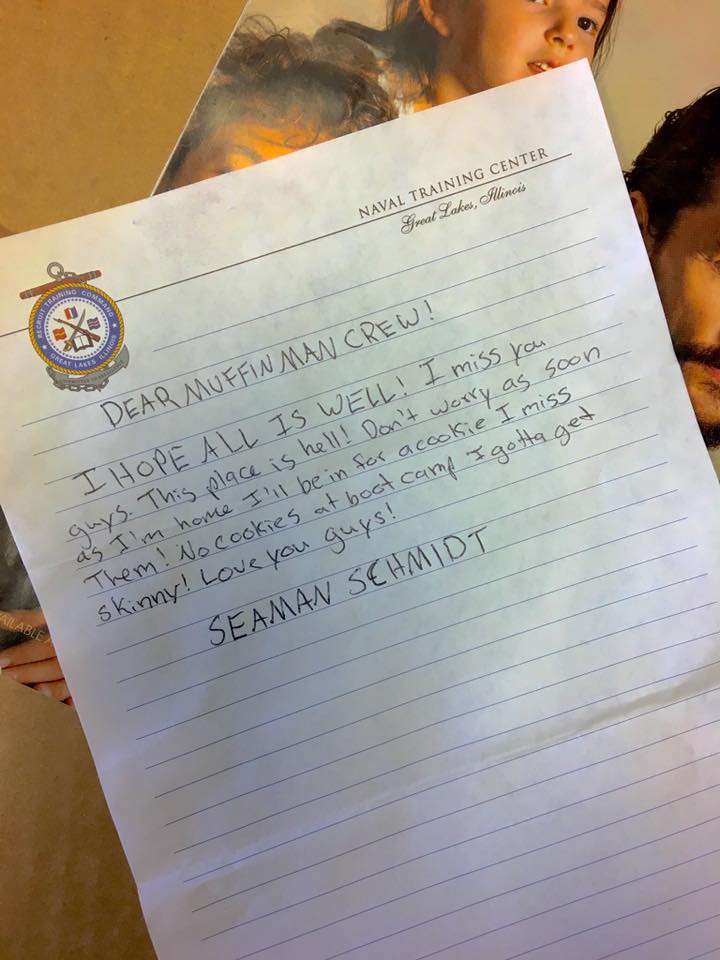 NAVAL TRAINING CENTER
Great Lakes, Illinois
RECRUIT TRAINING COMMAND
GREAT LAKES ILLINOIS
DEAR MUFFIN MAN CREW!
I HOPE ALL IS WELL! I miss you
guys. This place is hell! Don't worry as soon
as I'm home I'll be in for a cookie I miss
Them! No cookies at boot camp I gotta get
skinny! Love you guys!
SEAMAN SCHMIDT
AILABLE